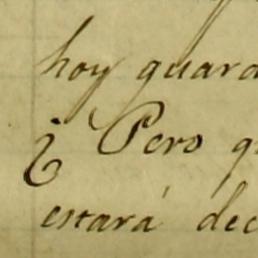 hoy guard
¿Pero q
estará dec